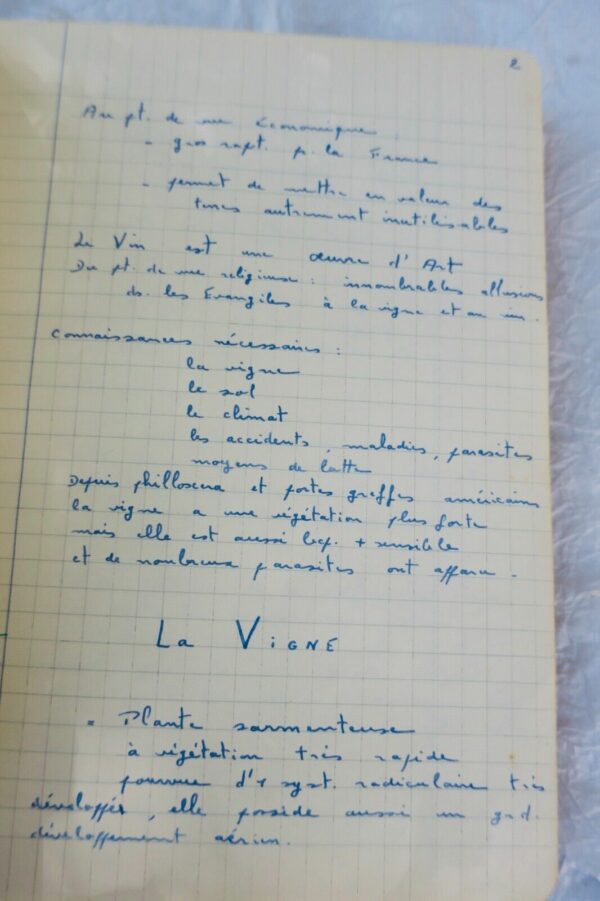 2
Au pt. de vue économique
- gros rapt. p. la France
- permet de mettre en valeur des
terres autrement inutilisables
Le Vin est une œuvre d'Art
Du pt. de vue religieuse : innombrables allusions
ds. les Evangiles à la vigne et au vin.
Connaissances nécessaires :
la vigne
le sol
le climat
les accidents, maladies, parasites
moyens de lutte
Depuis philloxera et portes greffes américains
la vigne a une végétation plus forte
mais elle est aussi bcp. + sensible
et de nombreux parasites ont apparu.
La VIGNE
- Plante sarmenteuse
à végétation très rapide
pourvue d'1 syst. radiculaire très
développé, elle possède aussi un grd.
développement aérien.